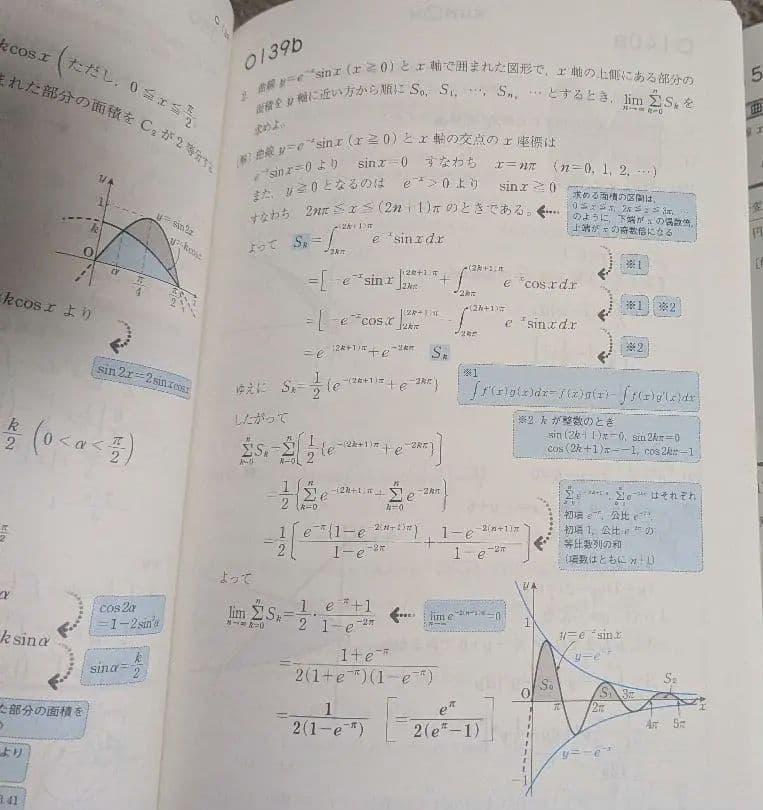 kcosx (ただし, 0≦x≦π/2
まれた部分の面積を C₂ が2等分する
y
1
k
O
α
π/4
π/2
x
y=sin2x
y=kcosx
kcosx より
sin2x=2sinxcosx
k/2 (0<α<π/2)
cos2α
=1-2sin²α
ksinα
sinα=k/2
た部分の面積を
より
3.41
O139b
2. 曲線 y=e^{-x}sinx (x≧0) と x 軸で囲まれた図形で, x 軸の上側にある部分の
面積を y 軸に近い方から順に S₀, S₁, …, Sₙ, … とするとき, lim_{n→∞} Σ_{k=0}^{n} S_k を
求めよ.
(解) 曲線 y=e^{-x}sinx (x≧0) と x 軸の交点の x 座標は
e^{-x}sinx=0 より sinx=0 すなわち x=nπ (n=0, 1, 2, …)
また, y≧0 となるのは e^{-x}>0 より sinx≧0
すなわち 2nπ≦x≦(2n+1)π のときである.
求める面積の区間は,
0≦x≦π, 2π≦x≦3π,
のように, 下端が π の偶数倍,
上端が π の奇数倍になる
よって S_k=∫_{2kπ}^{(2k+1)π} e^{-x}sinxdx
※1
=[-e^{-x}sinx]_{2kπ}^{(2k+1)π}+∫_{2kπ}^{(2k+1)π} e^{-x}cosxdx
※1 ※2
=[-e^{-x}cosx]_{2kπ}^{(2k+1)π}-∫_{2kπ}^{(2k+1)π} e^{-x}sinxdx
※2
=e^{-(2k+1)π}+e^{-2kπ}-S_k
ゆえに S_k=1/2{e^{-(2k+1)π}+e^{-2kπ}}
※1
∫f'(x)g(x)dx=f(x)g(x)-∫f(x)g'(x)dx
したがって
※2 k が整数のとき
sin(2k+1)π=0, sin2kπ=0
cos(2k+1)π=-1, cos2kπ=1
Σ_{k=0}^{n} S_k=Σ_{k=0}^{n}[1/2{e^{-(2k+1)π}+e^{-2kπ}}]
=1/2{Σ_{k=0}^{n} e^{-(2k+1)π}+Σ_{k=0}^{n} e^{-2kπ}}
=1/2[e^{-π}{1-e^{-2(n+1)π}}/(1-e^{-2π})+(1-e^{-2(n+1)π})/(1-e^{-2π})]
Σ_{k=0}^{n} e^{-(2k+1)π}, Σ_{k=0}^{n} e^{-2kπ} はそれぞれ
初項 e^{-π}, 公比 e^{-2π},
初項 1, 公比 e^{-2π} の
等比数列の和
(項数はともに n+1)
よって
lim_{n→∞} Σ_{k=0}^{n} S_k=1/2・(e^{-π}+1)/(1-e^{-2π})
lim_{n→∞} e^{-2(n+1)π}=0
=(1+e^{-π})/(2(1+e^{-π})(1-e^{-π}))
=1/(2(1-e^{-π})) [=e^{π}/(2(e^{π}-1))]
y
1
y=e^{-x}sinx
y=e^{-x}
O
S₀
S₁
S₂
π
2π
3π
4π
5π
x
y=-e^{-x}
-1